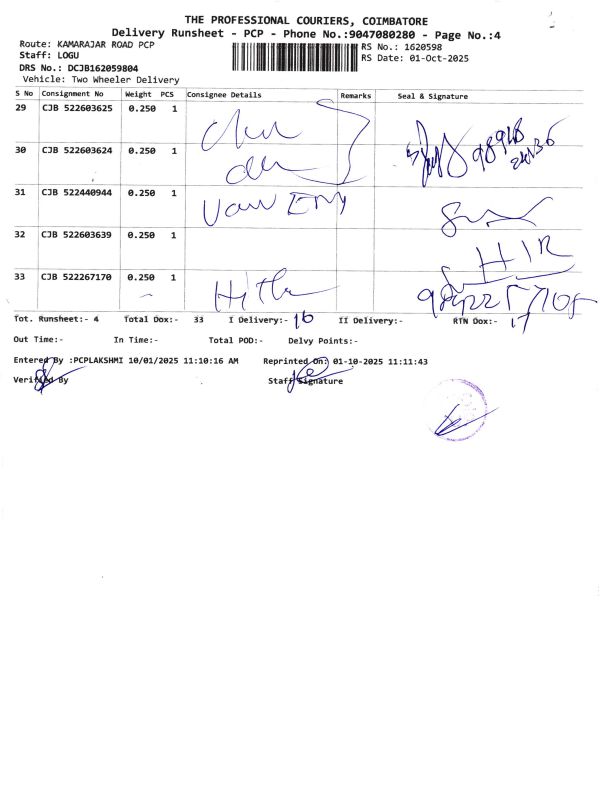 THE PROFESSIONAL COURIERS, COIMBATORE
Delivery Runsheet - PCP - Phone No.:9047080280 - Page No.:4
Route: KAMARAJAR ROAD PCP
RS No.: 1620598
Staff: LOGU
RS Date: 01-Oct-2025
DRS No.: DCJB162059804
Vehicle: Two Wheeler Delivery
S No Consignment No Weight PCS Consignee Details Remarks Seal & Signature
29 CJB 522603625 0.250 1
30 CJB 522603624 0.250 1
31 CJB 522440944 0.250 1
32 CJB 522603639 0.250 1
33 CJB 522267170 0.250 1
Tot. Runsheet:- 4 Total Dox:- 33 I Delivery:- 16 II Delivery:- RTN Dox:- 17
Out Time:- In Time:- Total POD:- Delvy Points:-
Entered By :PCPLAKSHMI 10/01/2025 11:10:16 AM Reprinted On: 01-10-2025 11:11:43
Verified By Staff Signature